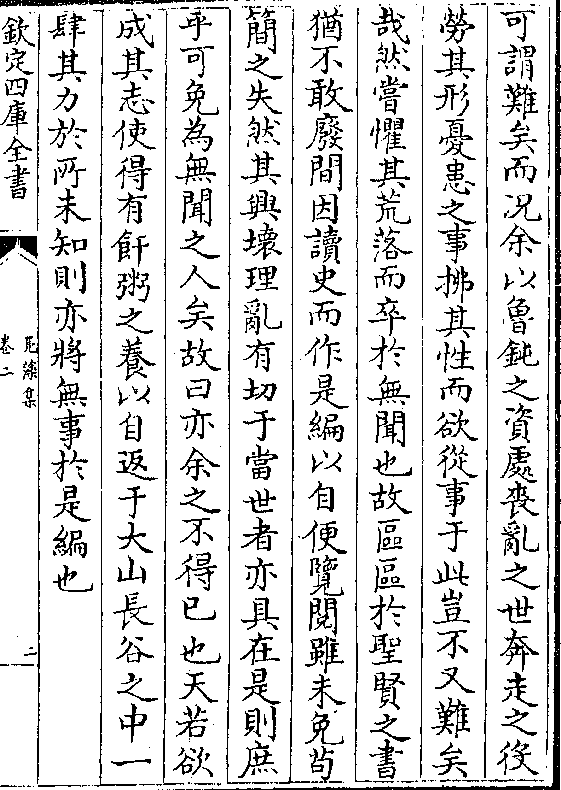 可謂難矣而况余以魯鈍之資處喪亂之世奔走之役
勞其形憂患之事拂其性而欲從事于此豈不又難矣
哉然嘗懼其荒落而卒於無聞也故區區於聖賢之書
猶不敢廢間因讀史而作是編以自便覽閱雖未免茍
簡之失然其興壞理亂有切于當世者亦具在是則庶
乎可免為無聞之人矣故曰亦余之不得已也天若欲
成其志使得有飦粥之養以自返于大山長谷之中一
肆其力於所未知則亦將無事於是編也
欽定四庫全書
卷二
二